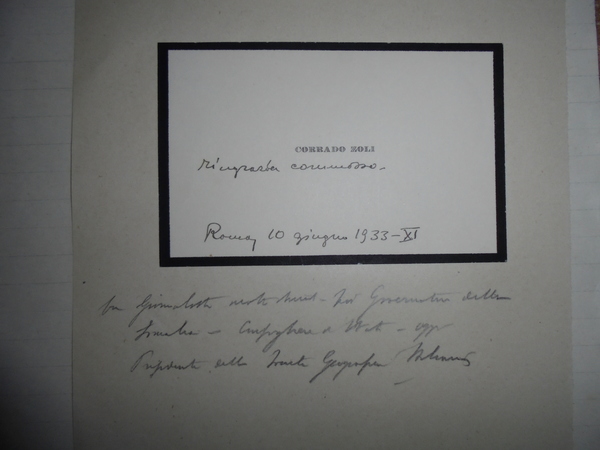 CORRADO ZOLI
ringrazia commosso.
Roma, 10 giugno 1933-XI
Giornalista Governatore della
Consigliere di Stato - oggi
Presidente della Società Geografica